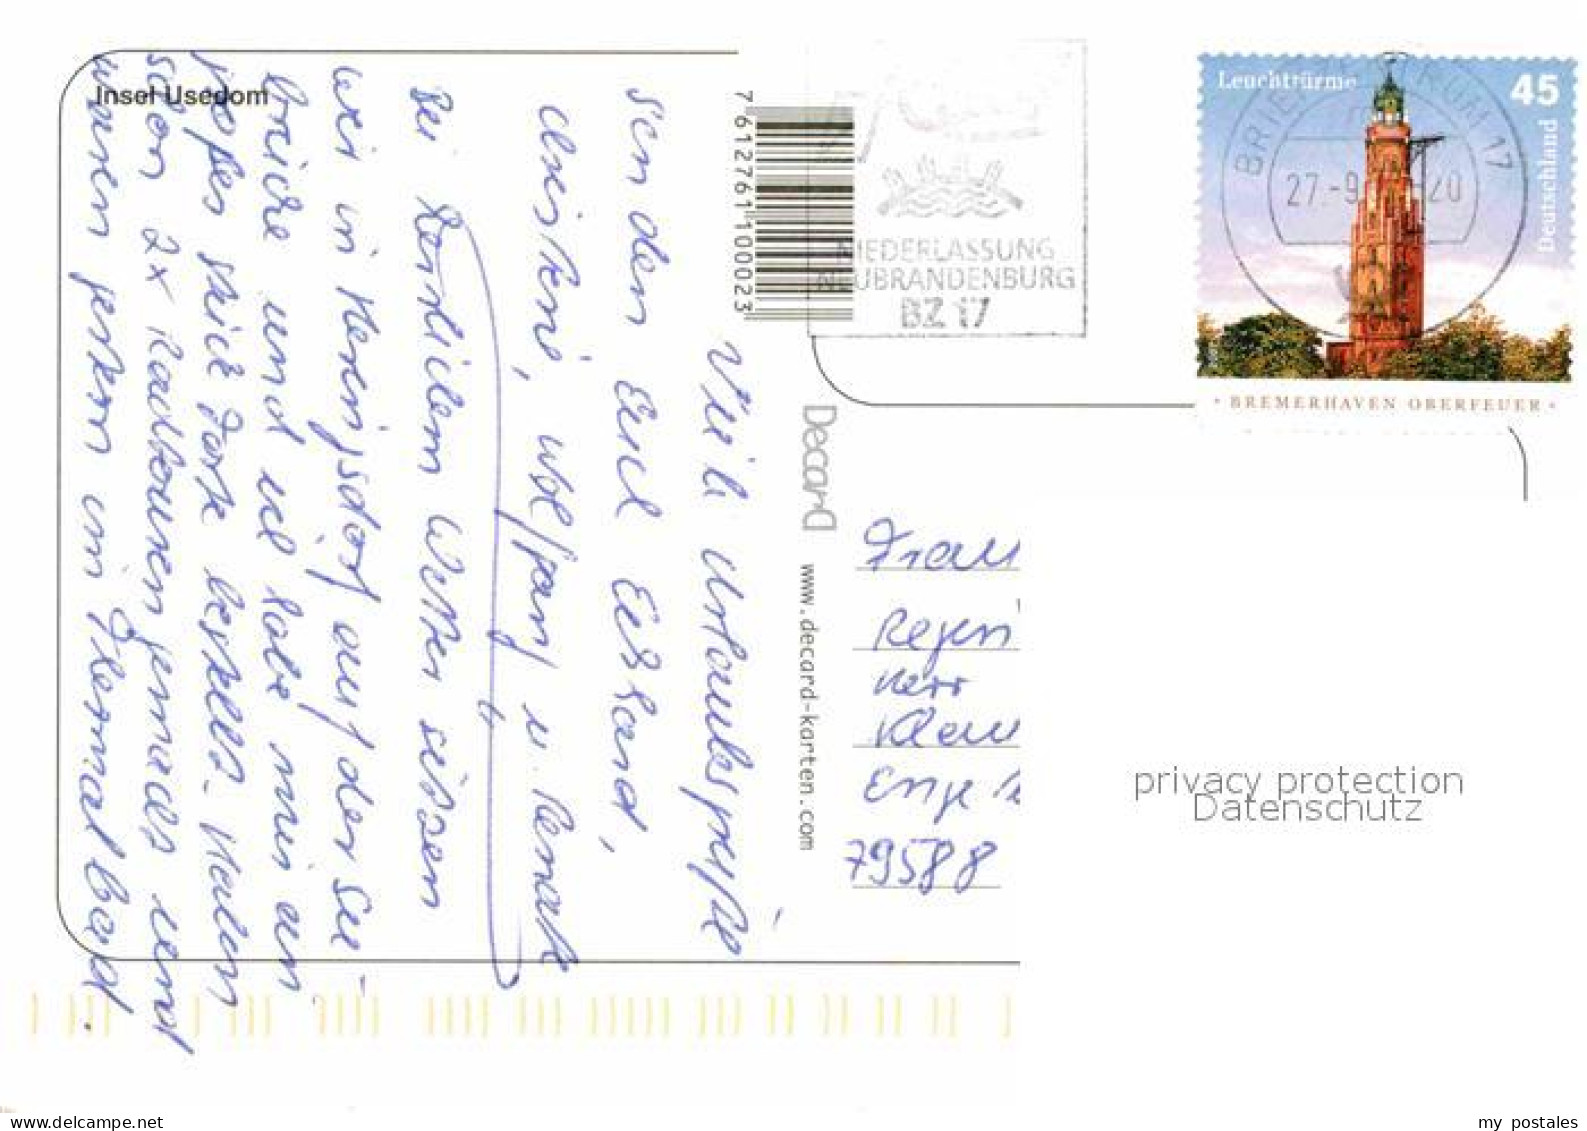 Insel Usedom
Bei herrlichem Wetter sitzen
wir in Heringsdorf auf der See-
brücke und ich habe mir ein
großes Stück Torte bestellt. Haben
schon 2x Radtouren gemacht und
waren gestern im Thermalbad.
Viele Urlaubsgrüße
senden Euch Eckhard,
Christine, Wolfgang u. Renate
7612761100023
Decard
www.decard-karten.com
NIEDERLASSUNG
NEUBRANDENBURG
BZ 17
Leuchttürme
45
Deutschland
BRIEFZENTRUM 17
27.-9. -20
• BREMERHAVEN OBERFEUER •
Frau
Regin
Herr
Klau
Enge
79588
privacy protection
Datenschutz
www.delcampe.net
my postales